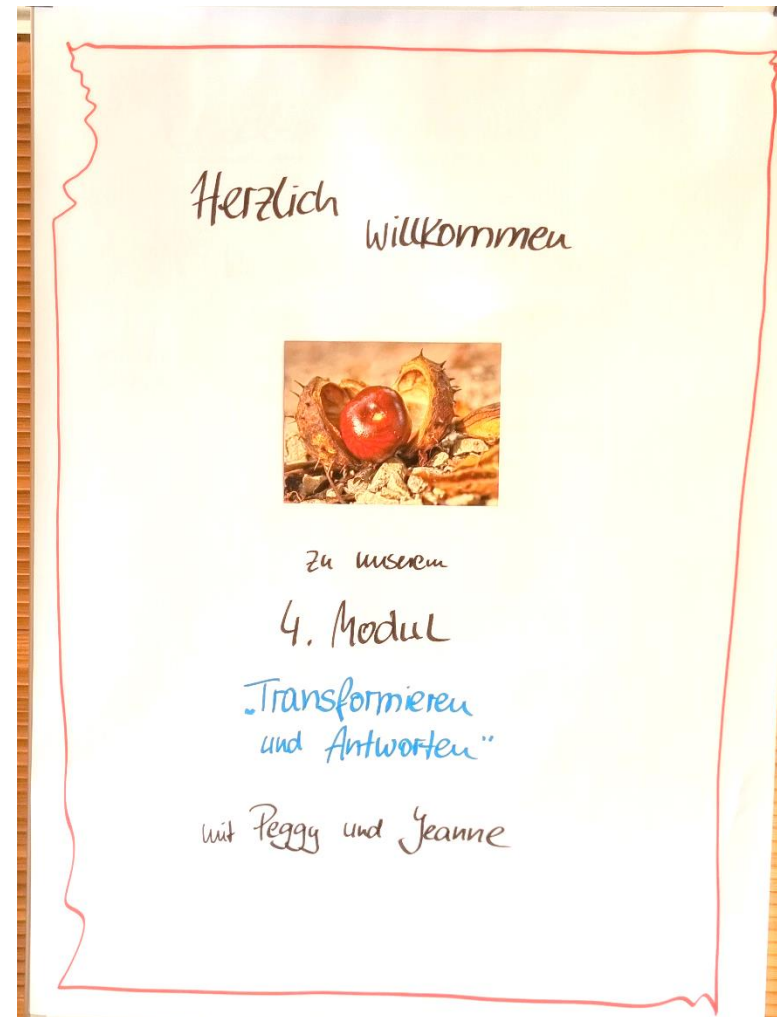 Herzlich willkommen
zu unserem
4. Modul
„Transformieren
und Antworten“
mit Peggy und Jeanne